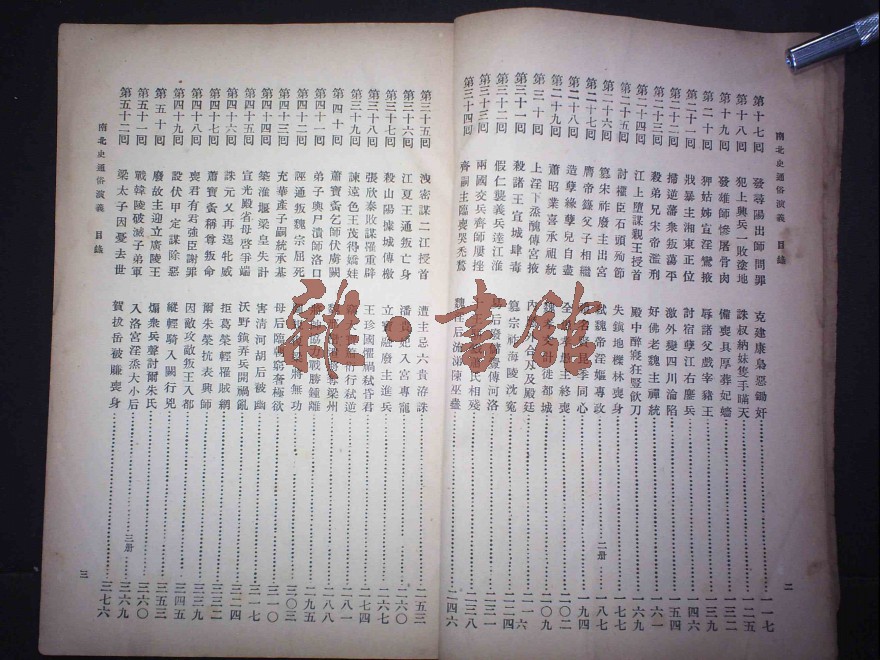 南北史通俗演義 目錄
第十七回 發尋陽出師問罪 克建康梟惡鋤奸 一一七
第十八回 犯上興兵一敗塗地 誅叔納妹隻手瞞天 一二五
第十九回 發雄師慘屠骨肉 備喪具厚葬妃嬙 一三二
第二十回 狎姑姊宣淫鸞掖 辱諸父戲宰豬王 一三九
第二十一回 戕暴主湘東正位 討宿孽江右鏖兵 一四六
第二十二回 掃逆藩衆叛蕩平 激外變四川淪陷 一五四
第二十三回 殺弟兄宋帝濫刑 好佛老魏主禪統 一六一
第二十四回 江上墮謀親王授首 殿中醉寢狂豎飲刀 一六九
第二十五回 討權臣石頭殉節 失鎮地櫟林喪身
第二十六回 篡宋祚廢主出宮 弒魏帝淫嫗專政 二册 一八七
第二十七回 膺帝籙父子相繼 李同心 一九四
第二十八回 造孽緣孽兒自盡 主終喪 二〇二
第二十九回 蕭昭業喜承祖統 計徙都城 二〇九
第三十回 上淫下蒸醜傳宮掖 內 及殿廷 二一六
第三十一回 殺諸王宣城肆毒 篡宗祚海陵沈冤 二二四
第三十二回 假仁襲義兵達江淮 后廢 傳河洛
第三十三回 兩國交兵齊師屢挫 氏相殘 二三八
第三十四回 齊嗣主臨喪哭禿鶖 魏 后流 陳巫蠱 二四六
二
第三十五回 洩密謀二江授首 遭主忌六貴洊誅 二五三
第三十六回 江夏王通叛亡身 潘 妃入宮專寵 二六〇
第三十七回 殺山陽據城傳檄 立 融廢主進兵 二六七
第三十八回 張欣泰敗謀罹重辟 王珍國懼禍弒昏君 二七四
第三十九回 諫遠色王茂得嬌娃 行弒逆 二八一
第四十回 蕭寶夤乞師伏虜闕 奪梁州 二八八
第四十一回 弟子輿尸潰師洛口 協力戰勝鍾離 二九五
第四十二回 誣通叛魏宗屈死 將無功 三〇三
第四十三回 充華產子嗣統承基 母后臨朝窮奢極欲 三一〇
第四十四回 築淮堰梁皇失計 害清河胡后被幽 三一七
第四十五回 宣光殿省母啓爭端 沃野鎮弄兵開禍亂 三二四
第四十六回 誅元乂再逞牝威 拒葛榮輕罹賊網 三三二
第四十七回 蕭寶夤稱尊叛命 爾朱榮抗表興師 三三九
第四十八回 喪君有君強臣謝罪 因敵攻敵叛王入都 三四五
第四十九回 設伏甲定謀除惡 縱輕騎入闕行兇 三五三
第五十回 廢故主迎立廣陵王 煽衆兵聲討爾朱氏 三六〇
第五十一回 戰韓陵破滅子弟軍 入洛宮淫烝大小后 三册 三六九
第五十二回 梁太子因憂去世 賀拔岳被賺喪身 三七六
南北史通俗演義 目錄
三
雜·書館